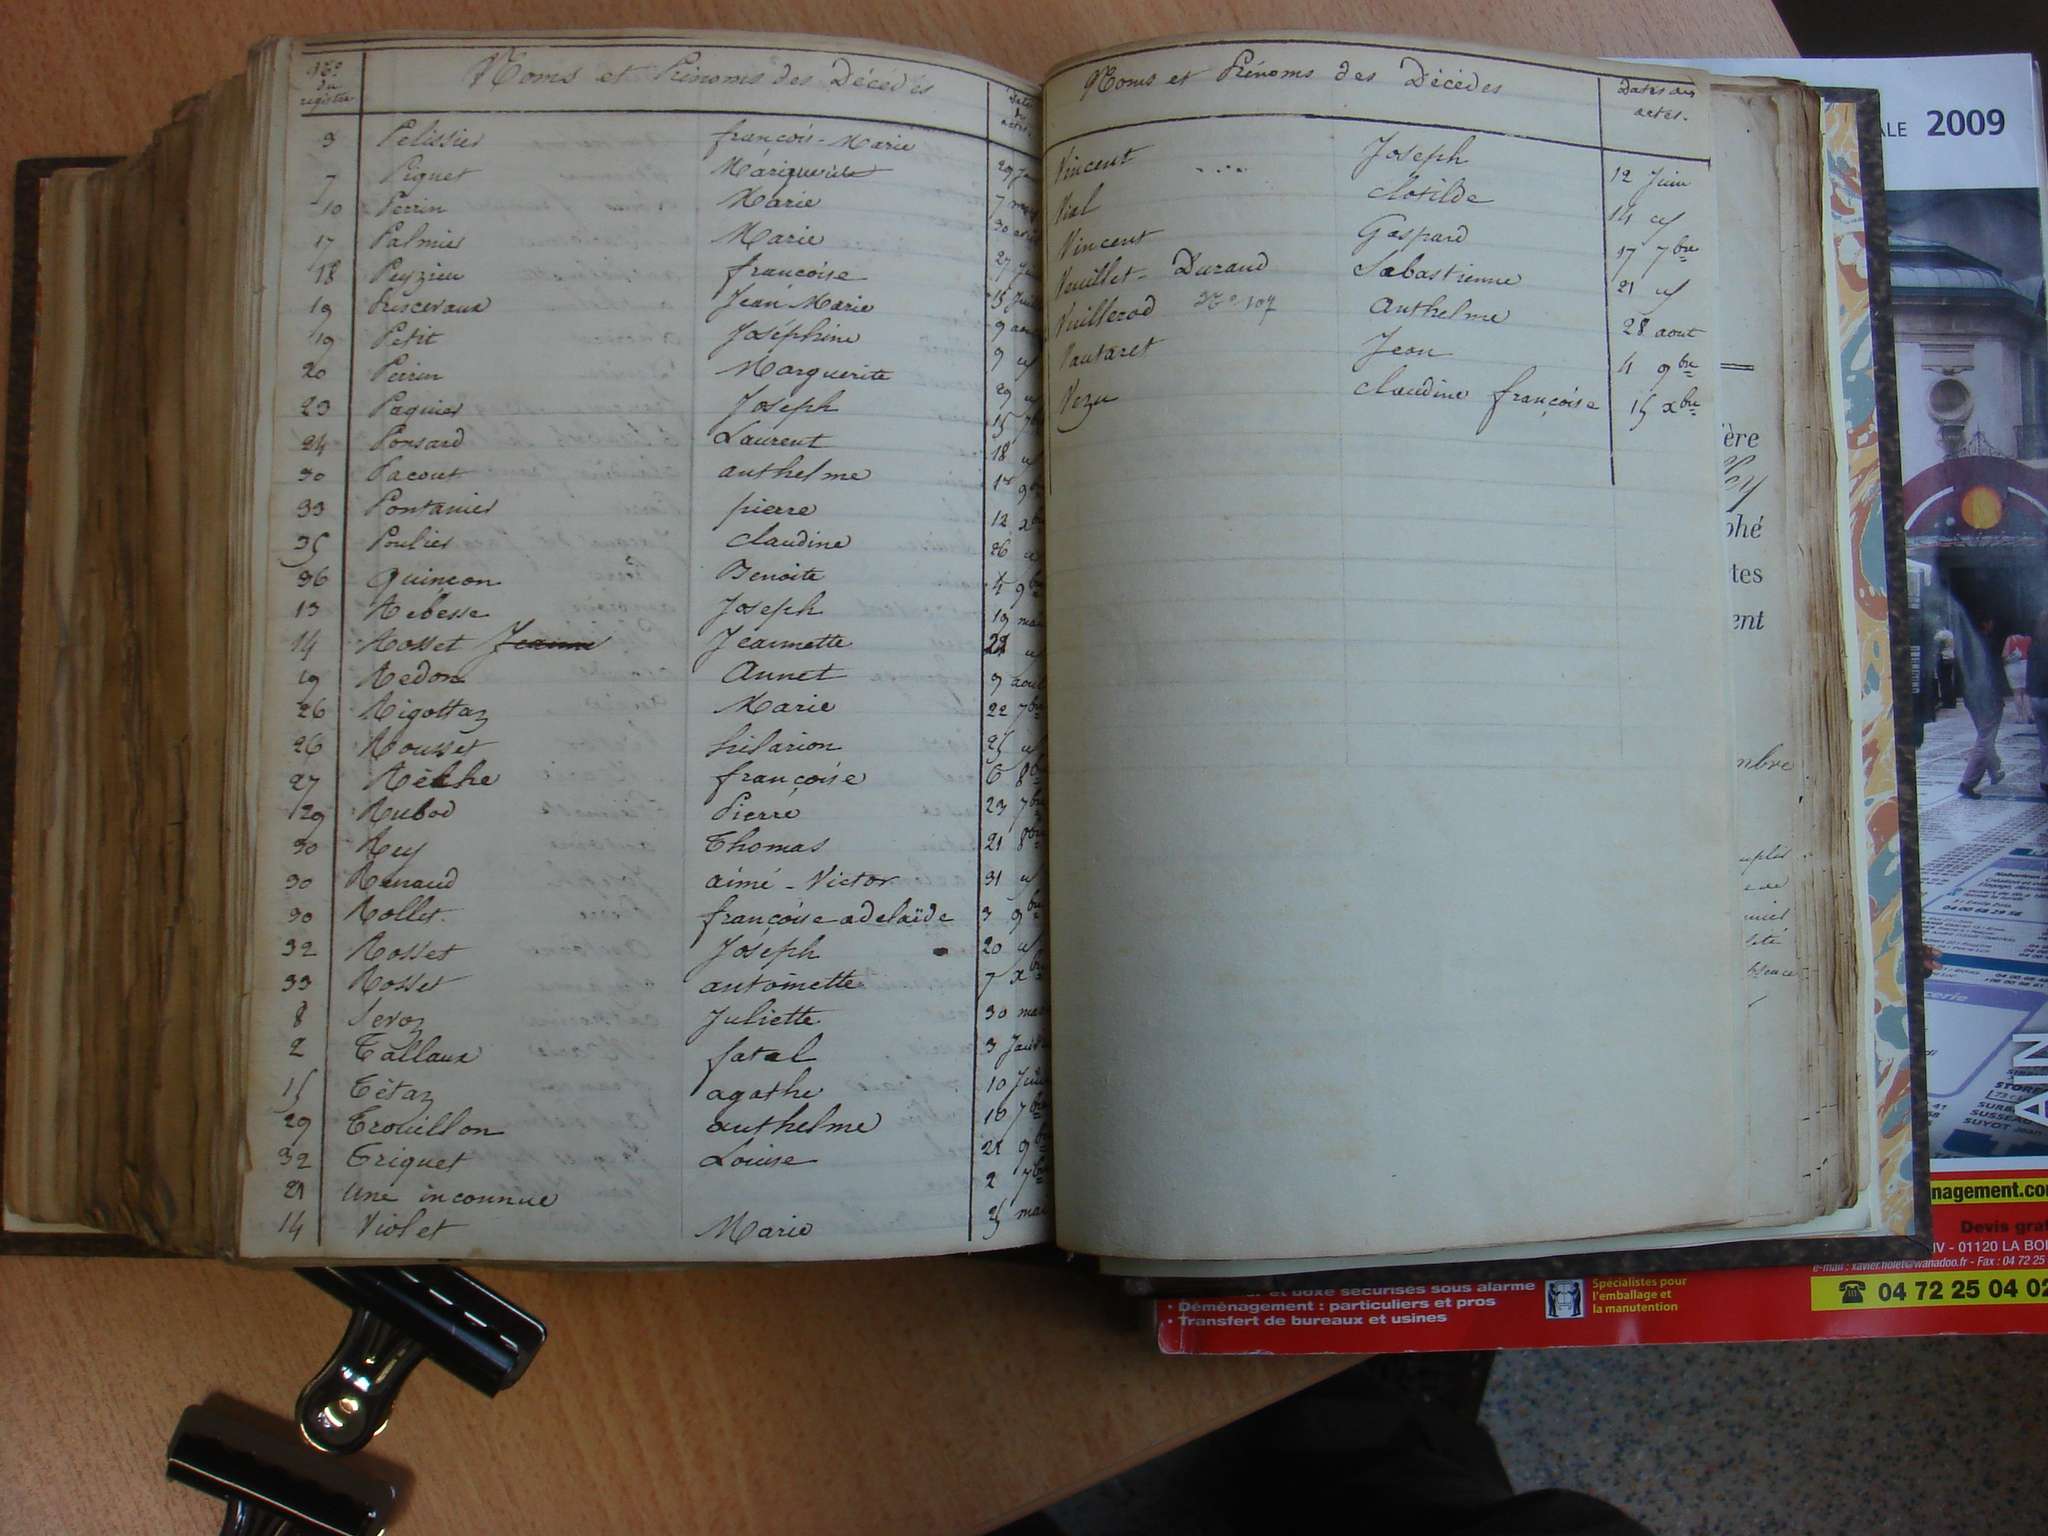 No
du
registre
Noms et Prénoms des Décédés
actes.
9 Pelissier françois-Marie
7 Piguet Marguerite 29
10 Perrin Marie 7
17 Palmier Marie 30
18 Peyzieu francoise 27
19 Jean-Marie 15
19 Petit Joséphine 9
20 Perrin Marguerite 9
23 Paquier Joseph 29
24 Ponsard Laurent 15
30 Pacout anthelme 18
33 Pontanier pierre
35 Poulier Claudine 12
36 Quinçon Benoite 26
13 Rebesse Joseph 4
14 Rosset Jeanne Jeannette 19
19 Redon Annet
26 Rigottaz Marie 22 7bre
26 Rousset hilarion 25
27 françoise 6
29 Rubod Pierre 23 7bre
30 Rey Thomas 21 8bre
30 Renaud aimé-Victor 31
30 Rollet françoise adelaïde 3 9bre
32 Rosset Joseph 20
33 Rosset antoinette 7 xbre
8 Seroz Juliette 30
2 Tallaux fatal 3
15 Tétaz agathe 10
29 Trouillon anthelme 7bre
32 Triquet Louise 9bre
21 Une inconnue 2 7bre
14 Violet Marie 25
Noms et Prénoms des Décédés
Dates des
actes.
Vincent Joseph 12 Juin
Vial Clotilde 14
Vincent Gaspard 17 7bre
Vuillet-Durand Sabastienne 21
Vuillerod No 107 Anthelme 28 aout
Vautaret Jean 4 9bre
Vezu Claudine françoise 15 xbre
ALE 2009
ère
phé
tes
ent
mbre
nagement.co
Devis gra
IV - 01120 LA BO
e-mail : xavier.holet@wanadoo.fr - Fax : 04 72 25
04 72 25 04 02
et boxe sécurisés sous alarme
• Déménagement : particuliers et pros
• Transfert de bureaux et usines
Spécialistes pour
l'emballage et
la manutention
AIN